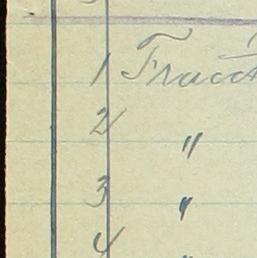 1 Fract
2 "
3 "
4 "